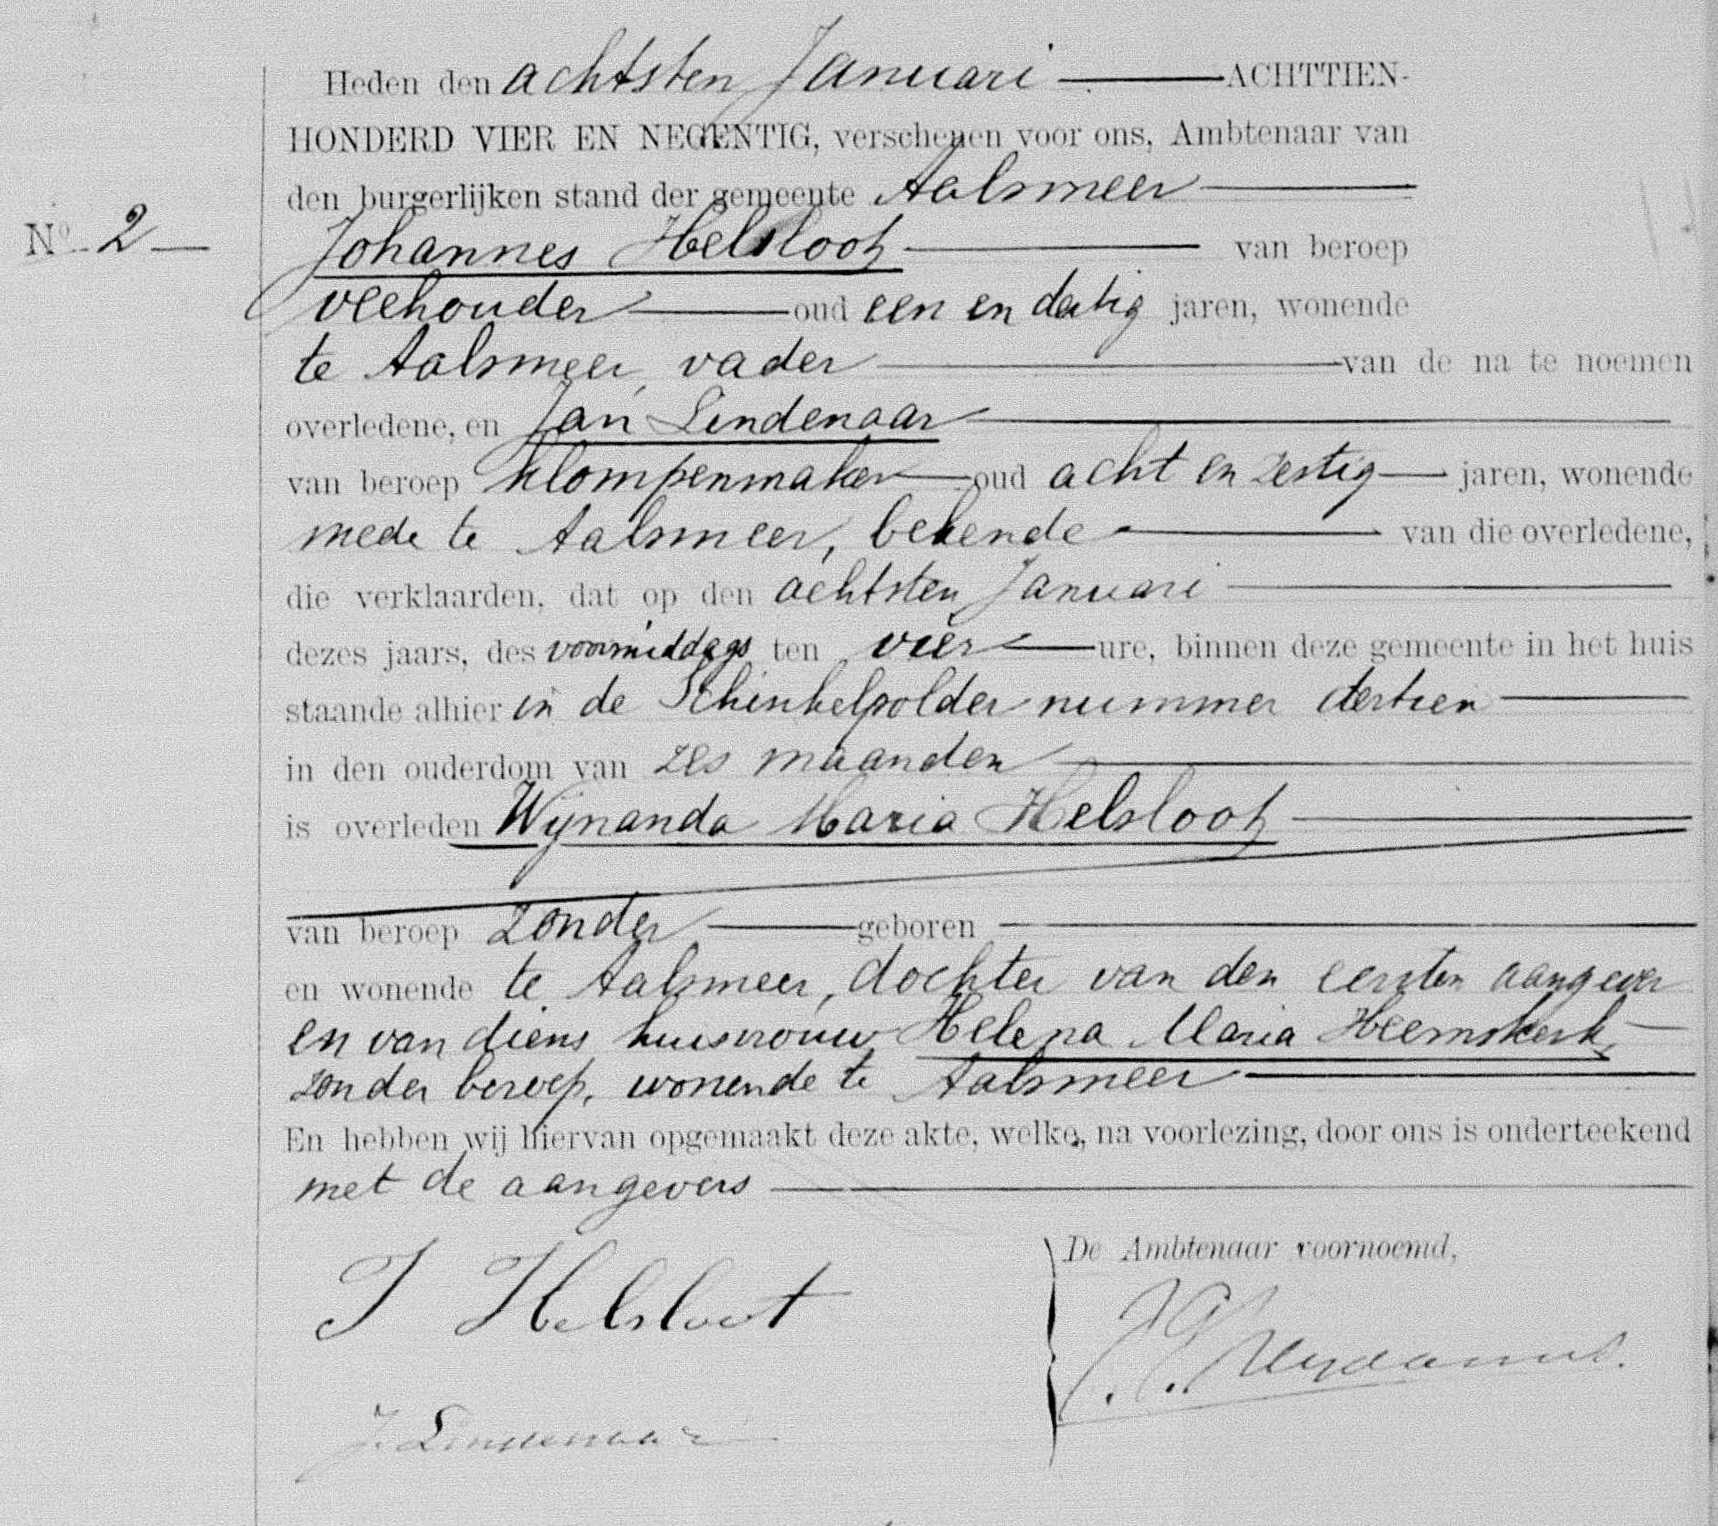 Heden den achtsten Januari ACHTTIEN-
HONDERD VIER EN NEGENTIG, verschenen voor ons, Ambtenaar van
den burgerlijken stand der gemeente Aalsmeer
No. 2
Johannes Helsloot van beroep
veehouder oud een en dertig jaren, wonende
te Aalsmeer, vader van de na te noemen
overledene, en Jan Lindenaar
van beroep klompenmaker oud acht en zestig jaren, wonende
mede te Aalsmeer, bekende van die overledene,
die verklaarden, dat op den achtsten Januari
dezes jaars, des voormiddags ten vier ure, binnen deze gemeente in het huis
staande alhier in de Schinkelpolder nummer dertien
in den ouderdom van zes maanden
is overleden Wijnanda Maria Helsloot
van beroep zonder geboren
en wonende te Aalsmeer, dochter van den eersten aangever
en van diens huisvrouw Helena Maria Heemskerk,
zonder beroep, wonende te Aalsmeer
En hebben wij hiervan opgemaakt deze akte, welke, na voorlezing, door ons is onderteekend
met de aangevers
De Ambtenaar voornoemd,
J Helsloot
J. Lindenaar